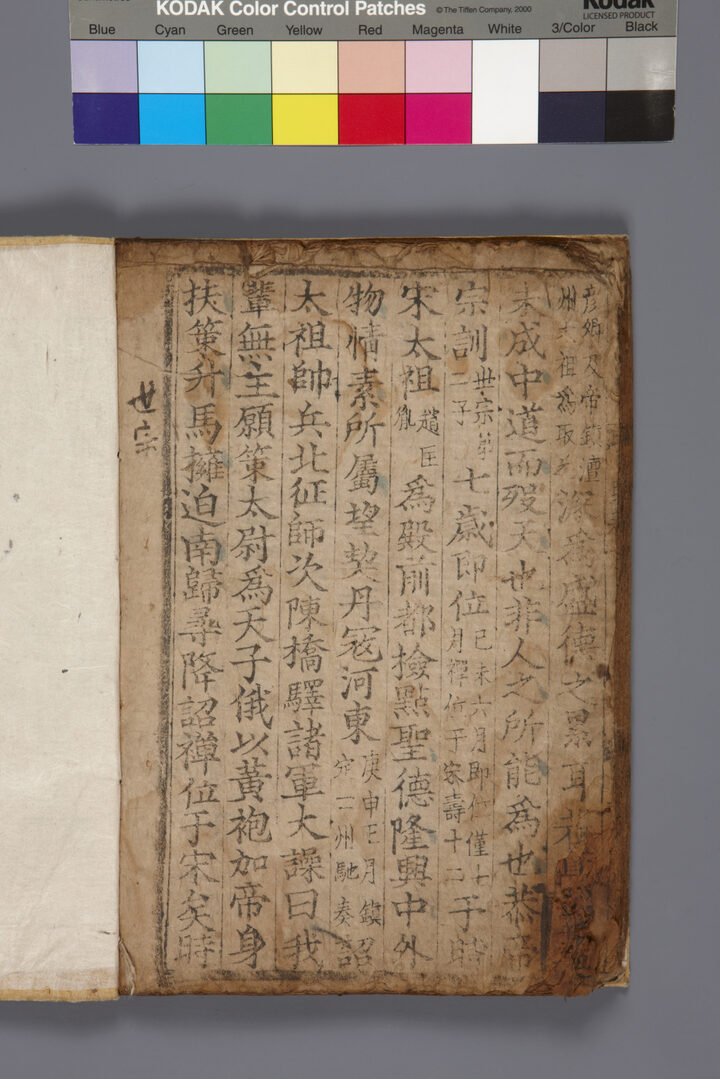 KODAK Color Control Patches ©The Tiffen Company, 2000
Kodak
LICENSED PRODUCT
Blue Cyan Green Yellow Red Magenta White 3/Color Black
彦姬又帝鎮澶
州太祖為取
深為盛德之累耳
未成中道而歿天也非人之所能為也恭帝
宗訓
世宗第
二子
七歲即位
己未六月即位僅七
月禪位于宋壽十二
于時
宋太祖
趙匡
胤
為殿前都撿點聖德隆興中外
物情素所屬望契丹寇河東
庚申正月鎮
定二州馳奏
詔
太祖帥兵北征師次陳橋驛諸軍大譟曰我
輩無主願策太尉為天子俄以黃袍加帝身
扶策升馬擁迫南歸尋降詔禪位于宋矣時
世宗